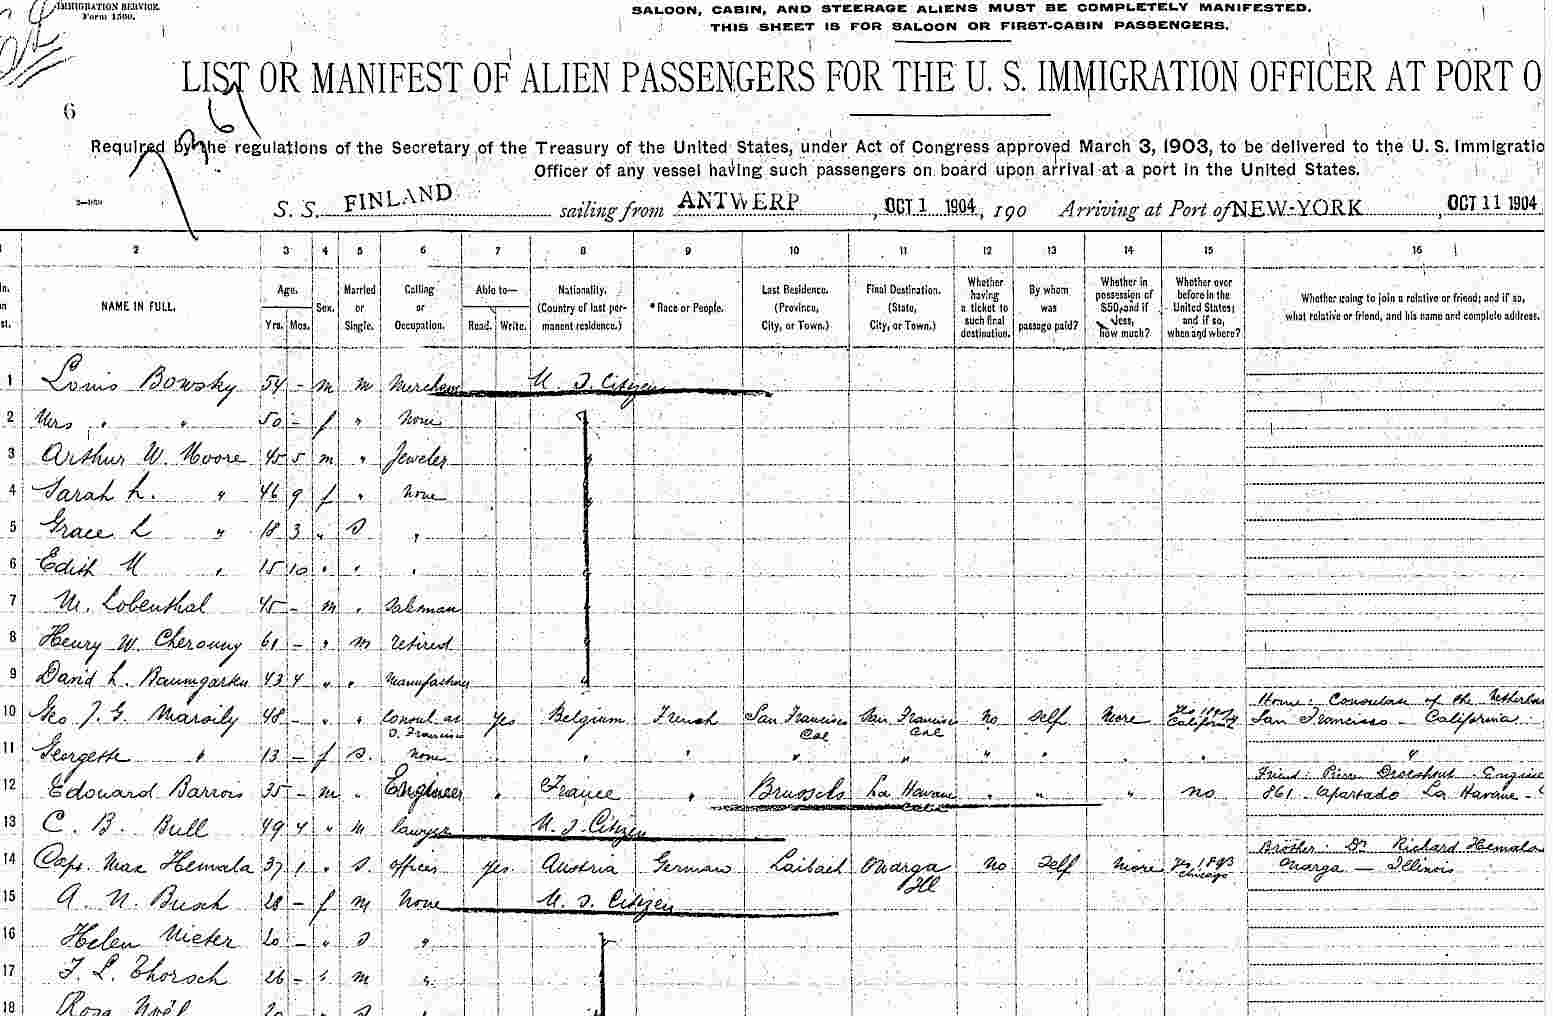 IMMIGRATION SERVICE.
Form 1500.
SALOON, CABIN, AND STEERAGE ALIENS MUST BE COMPLETELY MANIFESTED.
THIS SHEET IS FOR SALOON OR FIRST-CABIN PASSENGERS.
LIST OR MANIFEST OF ALIEN PASSENGERS FOR THE U. S. IMMIGRATION OFFICER AT PORT O
6
Required by the regulations of the Secretary of the Treasury of the United States, under Act of Congress approved March 3, 1903, to be delivered to the U. S. Immigratio
Officer of any vessel having such passengers on board upon arrival at a port in the United States.
S. S. FINLAND sailing from ANTWERP, OCT 1 1904, 190 Arriving at Port of NEW-YORK, OCT 11 1904
2 3 4 5 6 7 8 9 10 11 12 13 14 15 16
NAME IN FULL. Age. Yrs. Mos. Sex. Married or Single. Calling or Occupation. Able to— Read. Write. Nationality. (Country of last permanent residence.) *Race or People. Last Residence. (Province, City, or Town.) Final Destination. (State, City, or Town.) Whether having a ticket to such final destination. By whom was passage paid? Whether in possession of $50, and if less, how much? Whether ever before in the United States; and if so, when and where? Whether going to join a relative or friend; and if so, what relative or friend, and his name and complete address.
1 Louis Bowsky 54 - m m U. S. Citizen
2 Mrs " " 50 - f " None
3 Arthur W. Moore 45 5 m " Jeweler
4 Sarah L. " 46 9 f " None
5 Grace L " 18 3 " S "
6 Edith M " 15 10 " " "
7 M. Lobenthal 45 - m " Salesman
8 Henry W. Cherouny 61 - " m retired
9 David L. Baumgarten 43 4 " " Manufacturer
10 Geo J. G. 48 - " " Consul at S. Francisco yes Belgium French San Francisco Cal San Francisco Cal no self more California San Francisco - California
11 Georgette " 13 - f S. None
12 Edouard Barrois 35 - m " Engineer " France " Brussels La Havane Cuba " " " no Friend: Pierre 861 Apartado La Havane
13 C. B. Bull 49 4 " m lawyer U. S. Citizen
14 Capt. Max Hemala 37 1 " S. officer yes Austria German Laibach Onarga Ill no self more yes 1893 Chicago Brother: Dr Richard Hemala Onarga — Illinois
15 A. N. Busch 28 - f m None U. S. Citizen
16 Helen Nieter 20 - " S "
17 F. L. Thorsch 26 - " m "
18 Rosa Noël